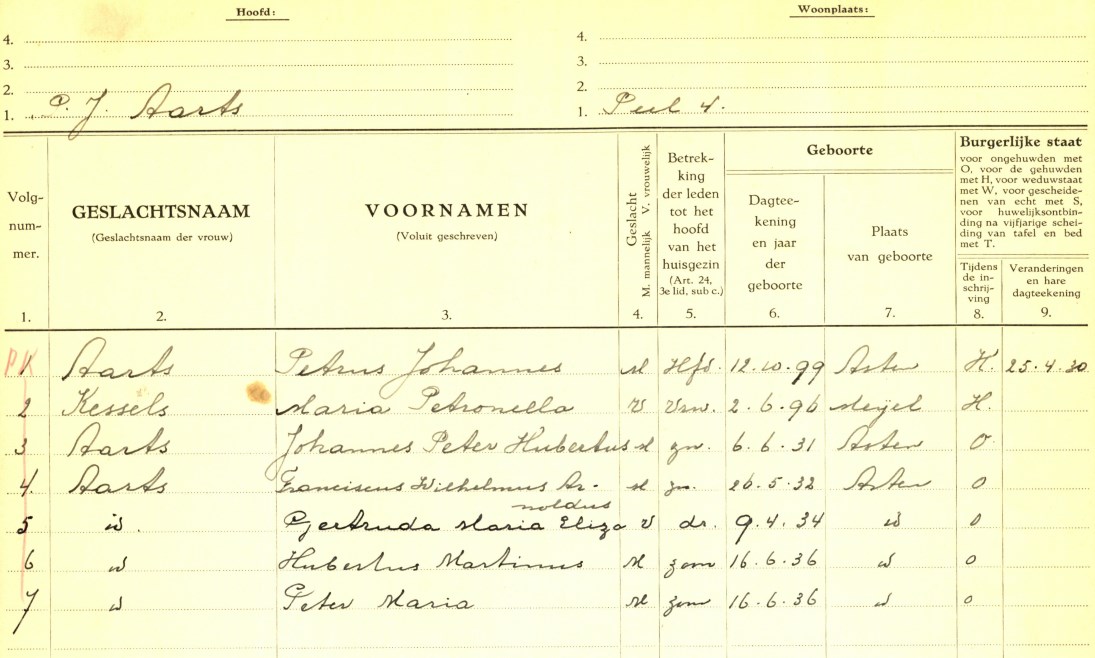 Hoofd:
Woonplaats:
4.
4.
3.
3.
2.
2.
1. P. J. Aarts
1. Peel 4.
Volg-
num-
mer.
GESLACHTSNAAM
(Geslachtsnaam der vrouw)
VOORNAMEN
(Voluit geschreven)
Geslacht
M. mannelijk V. vrouwelijk
Betrek-
king
der leden
tot het
hoofd
van het
huisgezin
(Art. 24,
3e lid, sub c.)
Geboorte
Dagtee-
kening
en jaar
der
geboorte
Plaats
van geboorte
Burgerlijke staat
voor ongehuwden met
O, voor de gehuwden
met H, voor weduwstaat
met W, voor gescheide-
nen van echt met S,
voor huwelijksontbin-
ding na vijfjarige schei-
ding van tafel en bed
met T.
Tijdens
de in-
schrij-
ving
Veranderingen
en hare
dagteekening
1. 2. 3. 4. 5. 6. 7. 8. 9.
PK
1 Aarts Petrus Johannes M Hfd. 12.10.99 Asten H. 25.4.30
2 Kessels Maria Petronella V Vrw. 2.6.96 Meijel H.
3 Aarts Johannes Peter Hubertus M zn. 6.6.31 Asten O
4. Aarts Franciscus Wilhelmus Ar- M zn. 26.5.32 Asten O
noldus
5 id. Gertruda Maria Eliza V dr. 9.4.34 id O
6 id Hubertus Martinus M zoon 16.6.36 id O
7 id Peter Maria M zoon 16.6.36 id O